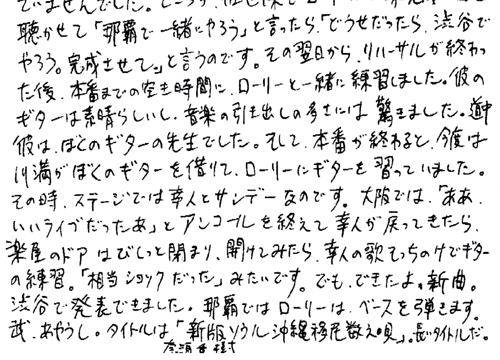 ていませんでした。ところが、
聴かせて「那覇で一緒にやろう」と言ったら、「どうせだったら、渋谷で
やろう。完成させて。」と言うのです。その翌日から、リハーサルが終わっ
た後、本番までの空き時間に、ローリーと一緒に練習しました。彼の
ギターは素晴らしいし、音楽の引き出しの多さには驚きました。道中
彼は、ぼくのギターの先生でした。そして、本番が終わると、今度は
川満がぼくのギターを借りて、ローリーにギターを習っていました。
その時、ステージでは幸人とサンデーなのです。大阪では、「ああ、
いいライブだったあ」とアンコールを終えて幸人が戻ってきたら、
楽屋のドアはびしっと閉まり、開けてみたら、幸人の歌そっちのけでギター
の練習。「相当ショックだった」みたいです。でも、できたよ。新曲。
渋谷で発表できました。那覇ではローリーは、ベースを弾きます。
武、あやうし。タイトルは「新版ソウル沖縄移民数え唄」。長いタイトルだ。